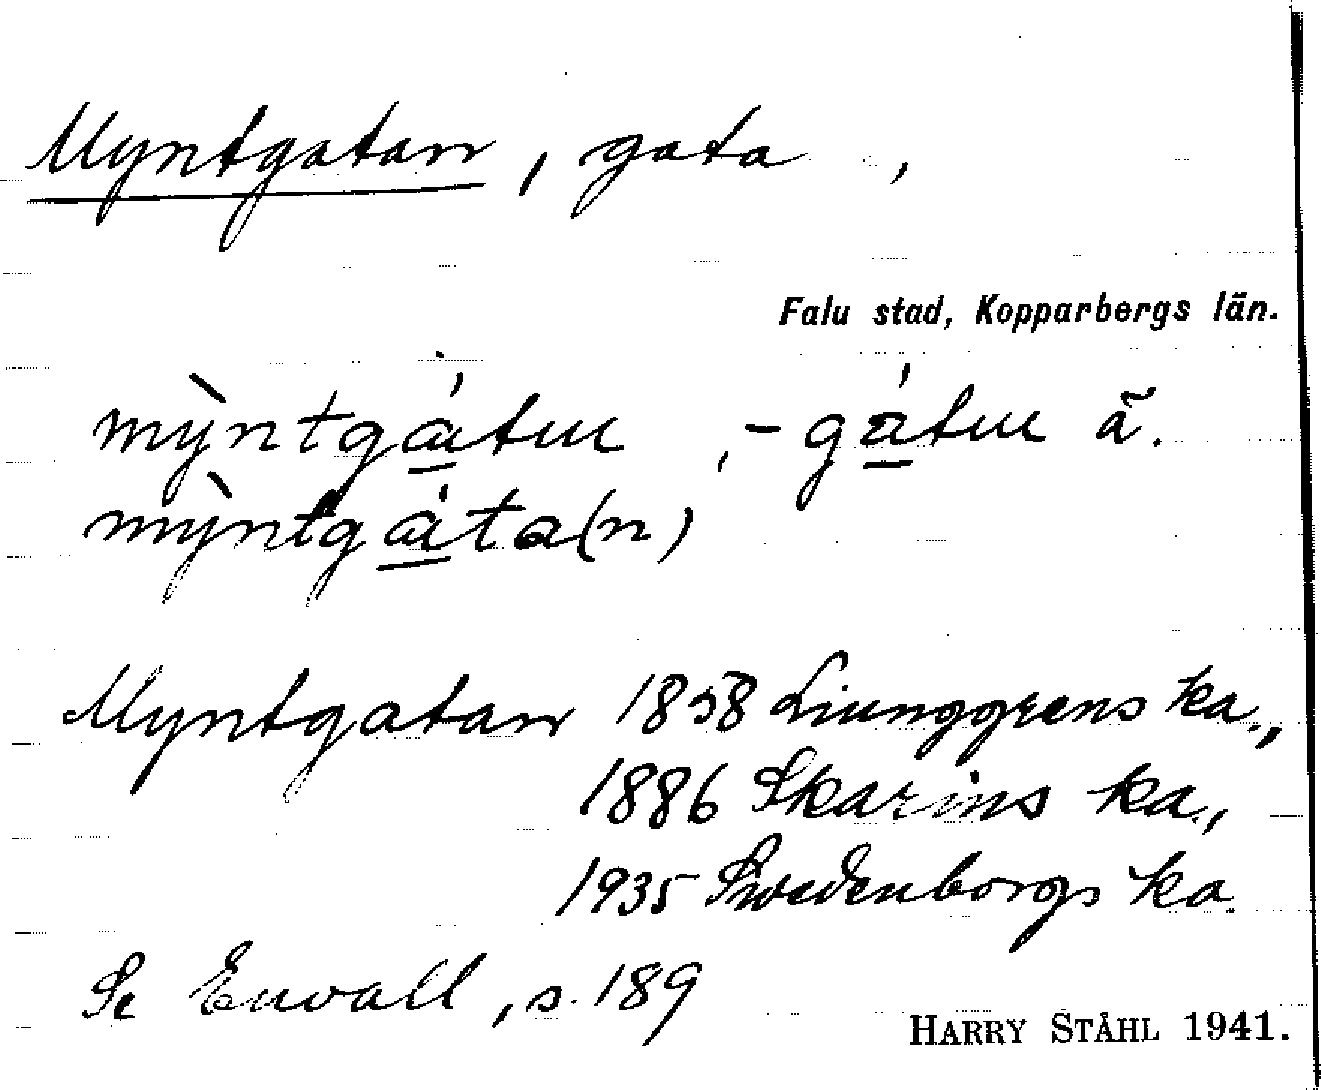 Myntgatan, gata ,
Falu stad, Kopparbergs län.
mỳntgátuɯ, -gátuɯ ã.
mỳntgáta(n)
Myntgatan 1858 Liunggrens ka.,
1886 Skarins ka.,
1935 Swedenborgs ka.
Se Envall, s. 189
HARRY STÅHL 1941.